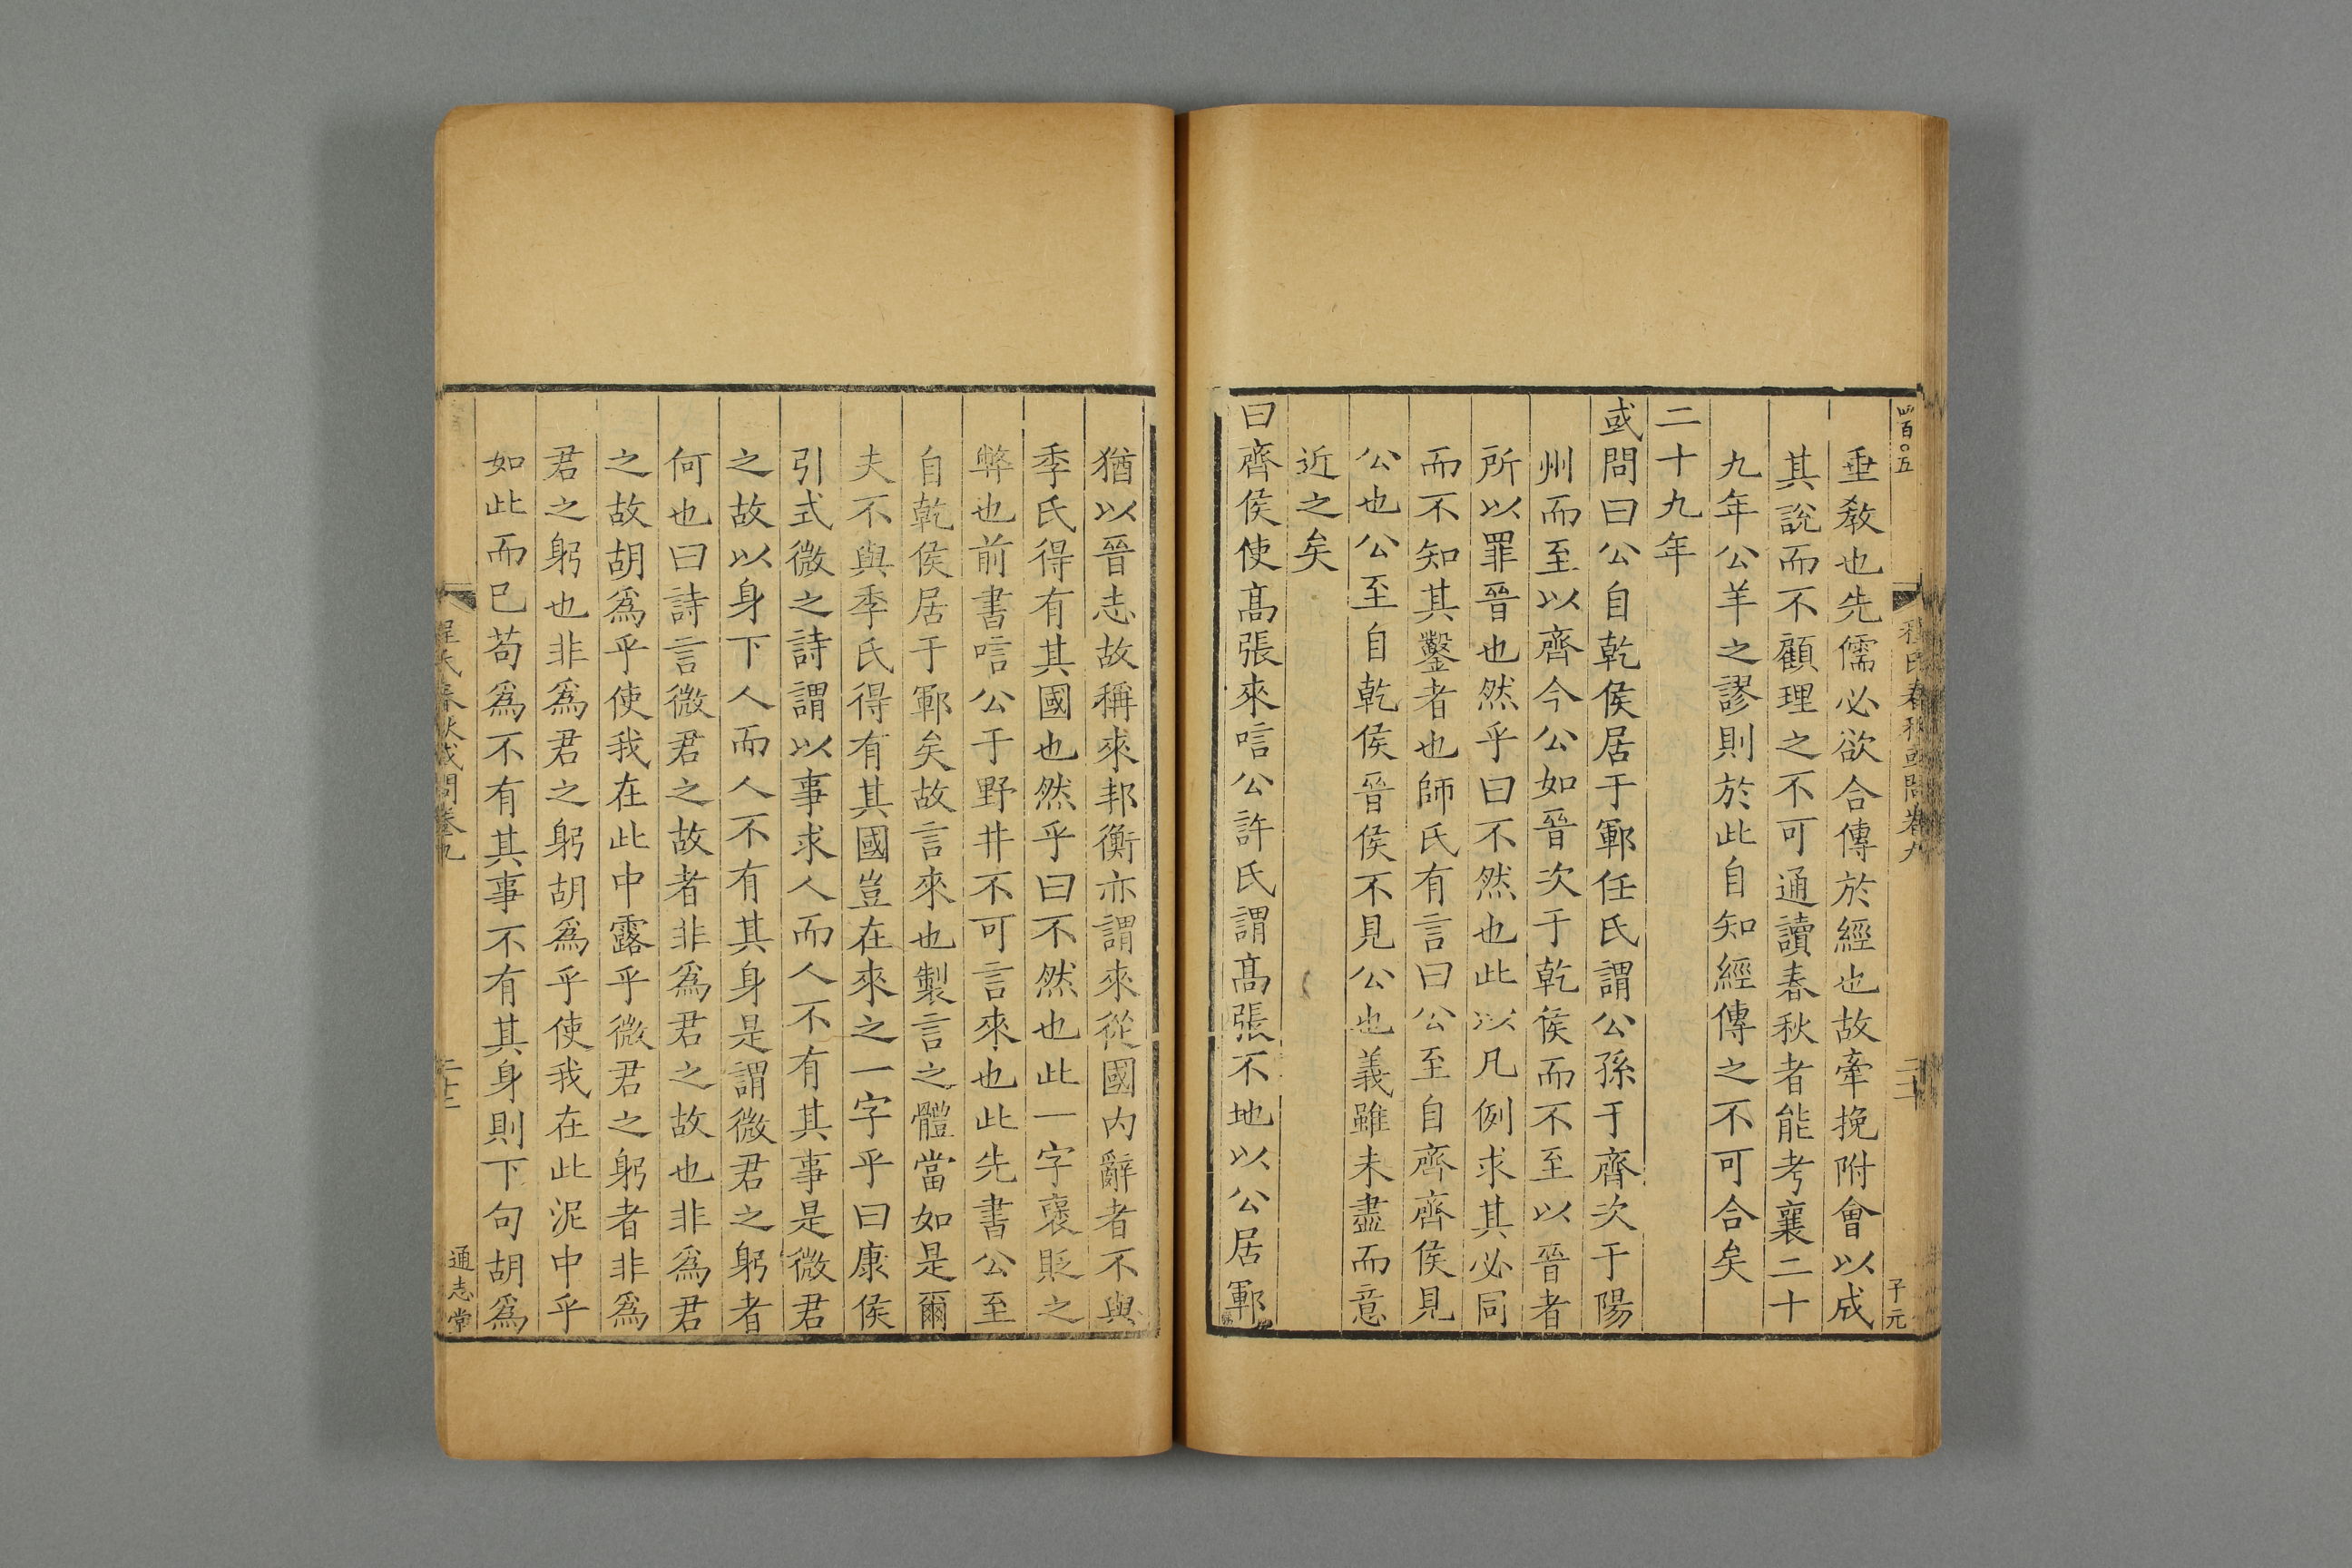 四百〇五
程氏春秋或問卷九
子元
垂敎也先儒必欲合傳於經也故牽挽附會以成
其說而不顧理之不可通讀春秋者能考襄二十
九年公羊之謬則於此自知經傳之不可合矣
二十九年
或問曰公自乾侯居于鄆任氏謂公孫于齊次于陽
州而至以齊今公如晉次于乾侯而不至以晉者
所以罪晉也然乎曰不然也此以凡例求其必同
而不知其鑿者也師氏有言曰公至自齊齊侯見
公也公至自乾侯晉侯不見公也義雖未盡而意
近之矣
曰齊侯使髙張來唁公許氏謂髙張不地以公居鄆
猶以晉志故稱來邦衡亦謂來從國内辭者不與
季氏得有其國也然乎曰不然也此一字襃貶之
弊也前書唁公于野井不可言來也此先書公至
自乾侯居于鄆矣故言來也製言之體當如是爾
夫不與季氏得有其國豈在來之一字乎曰康侯
引式微之詩謂以事求人而人不有其事是微君
之故以身下人而人不有其身是謂微君之躬者
何也曰詩言微君之故者非爲君之故也非爲君
之故胡爲乎使我在此中露乎微君之躬者非爲
君之躬也非爲君之躬胡爲乎使我在此泥中乎
如此而已苟爲不有其事不有其身則下句胡爲
程氏春秋或問卷九
通志堂